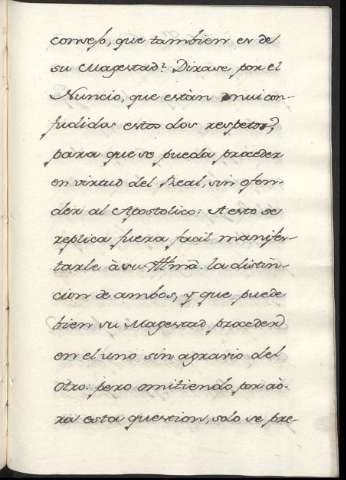 consejo, que tambien es de
su Magestad? Dirase por el
Nuncio, que estàn mui con-
fudidos estos dos respetos,
para que se pueda proceder
en virtud del Real, sin ofen-
der al Apostolico: A esto se
replica fuera facil manifes-
tarle à su Illmã. la distin-
cion de ambos, y que puede
bien su Magestad proceder
en el uno sin agravio del
otro: pero omitiendo por aò-
ra esta question, solo se pre-